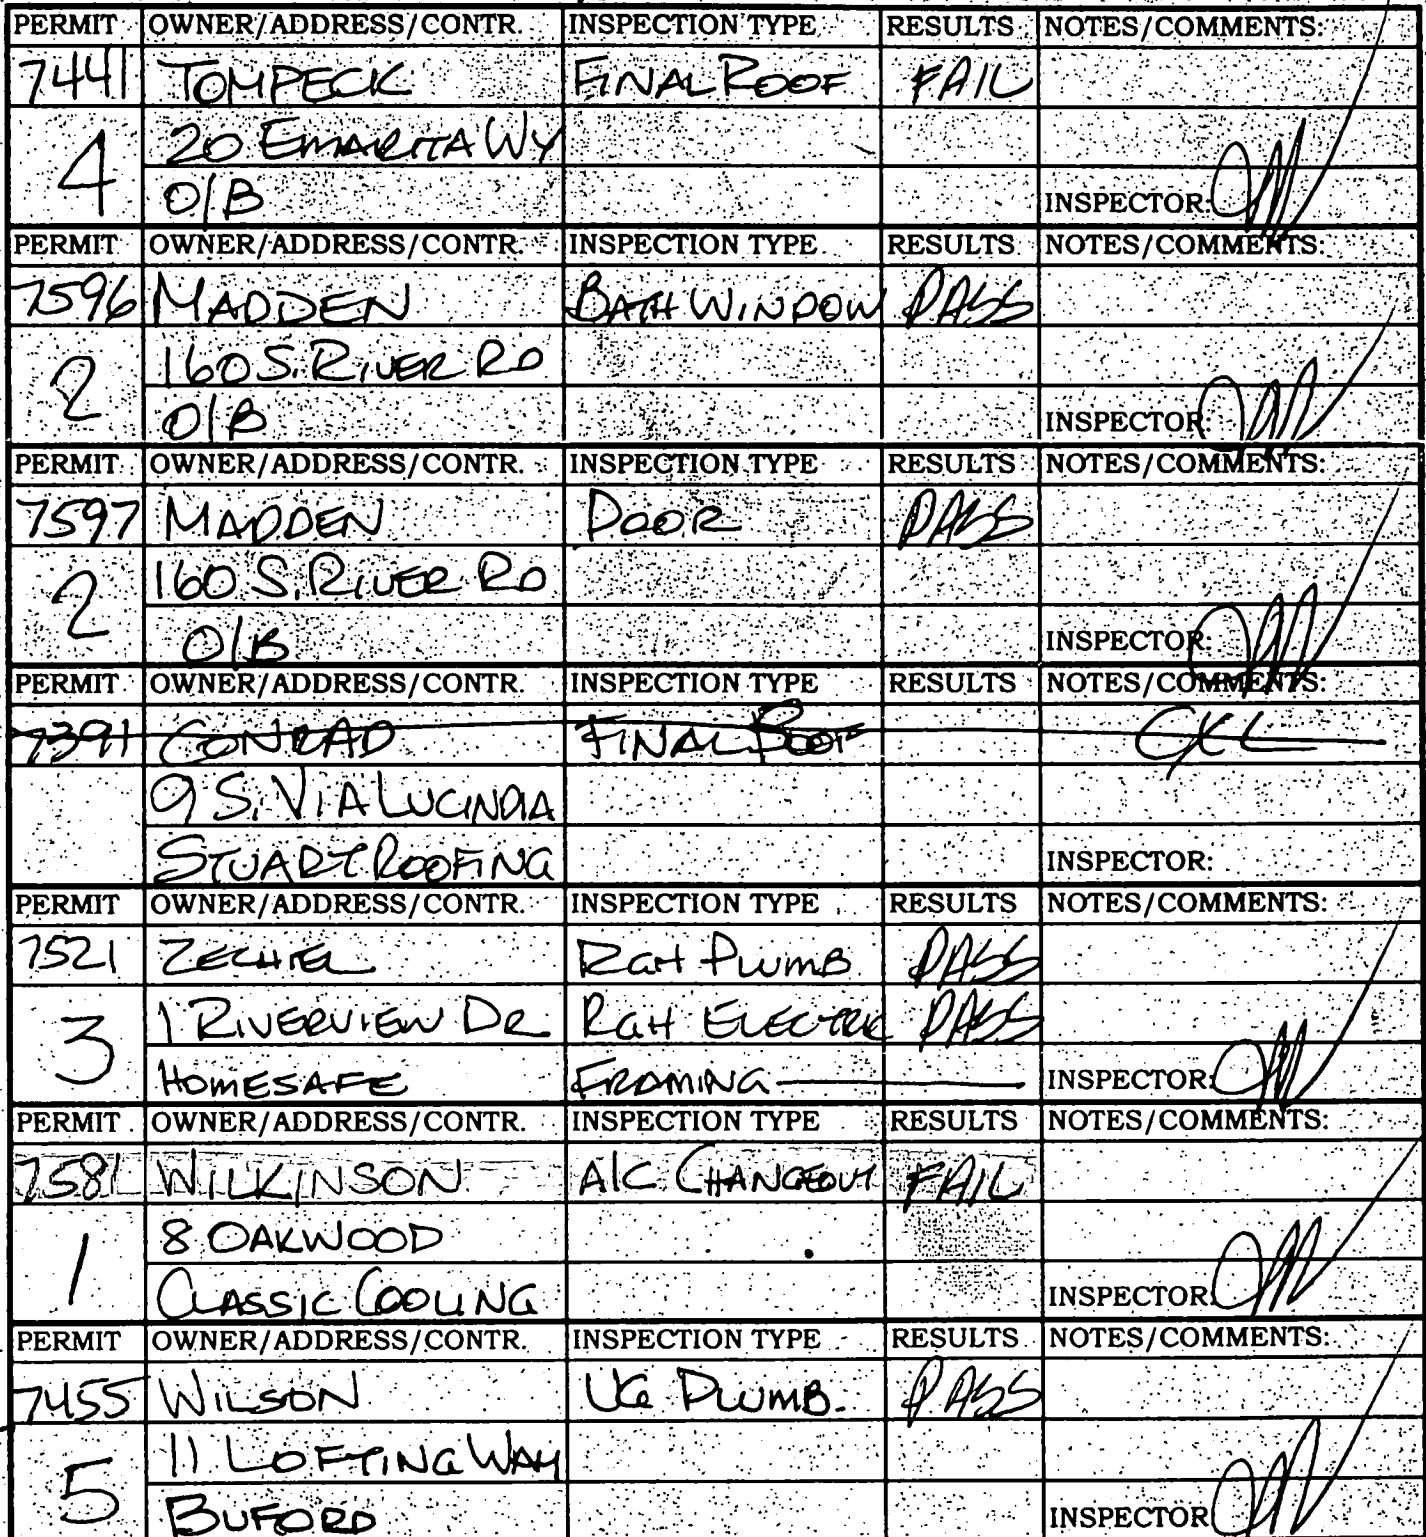 PERMIT OWNER/ADDRESS/CONTR. INSPECTION TYPE RESULTS NOTES/COMMENTS:
7441 TOMPECK FINAL ROOF FAIL
4 20 EMARITA WY
O/B INSPECTOR:
PERMIT OWNER/ADDRESS/CONTR. INSPECTION TYPE RESULTS NOTES/COMMENTS:
7596 MADDEN BATH WINDOW PASS
2 160 S. RIVER RD
O/B INSPECTOR:
PERMIT OWNER/ADDRESS/CONTR. INSPECTION TYPE RESULTS NOTES/COMMENTS:
7597 MADDEN DOOR PASS
2 160 S. RIVER RD
O/B INSPECTOR:
PERMIT OWNER/ADDRESS/CONTR. INSPECTION TYPE RESULTS NOTES/COMMENTS:
7391 CONRAD FINAL ROOF
9 S. VIA LUCINDIA
STUART ROOFING INSPECTOR:
PERMIT OWNER/ADDRESS/CONTR. INSPECTION TYPE RESULTS NOTES/COMMENTS:
7521 ZECHIEL RGH PLUMB PASS
3 1 RIVERVIEW DR RGH ELECTRIC PASS
HOMESAFE FRAMING INSPECTOR:
PERMIT OWNER/ADDRESS/CONTR. INSPECTION TYPE RESULTS NOTES/COMMENTS:
7581 WILKINSON A/C CHANGEOUT FAIL
1 8 OAKWOOD
CLASSIC COOLING INSPECTOR:
PERMIT OWNER/ADDRESS/CONTR. INSPECTION TYPE RESULTS NOTES/COMMENTS:
7455 WILSON UG PLUMB. PASS
5 11 LOFTING WAY
BUFORD INSPECTOR